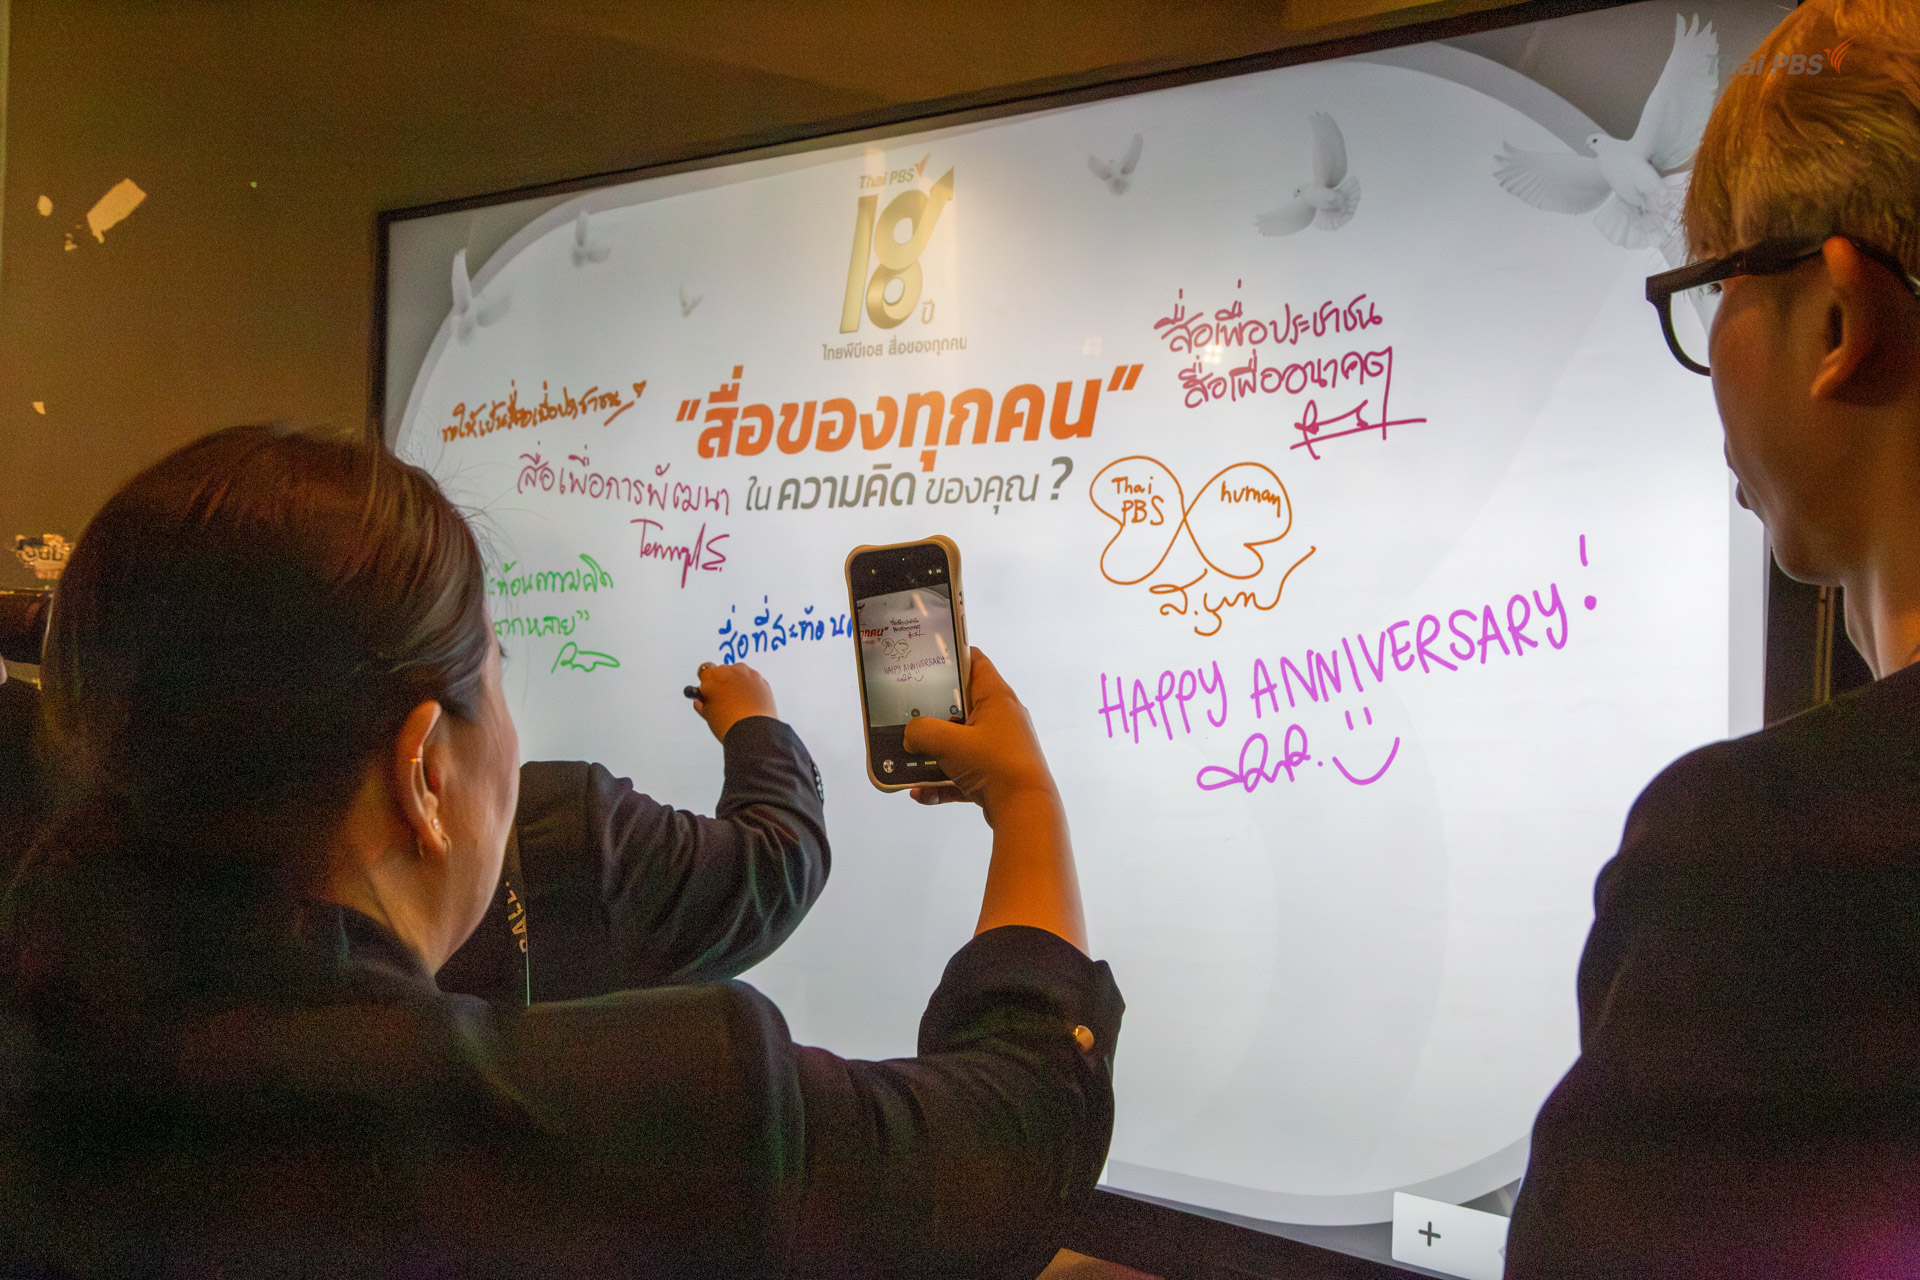 Thai PBS
Thai PBS
18
ปี
ไทยพีบีเอส สื่อของทุกคน
"สื่อของทุกคน"
ใน ความคิด ของคุณ ?
สื่อเพื่อประชาชน
สื่อเพื่ออนาคต
สื่อเพื่อการพัฒนา
Thai
PBS
human
สะท้อนความคิด
หลากหลาย"
สื่อที่สะท้อน
HAPPY ANNIVERSARY!
HAPPY ANNIVERSARY
VIDEO
PHOTO
+